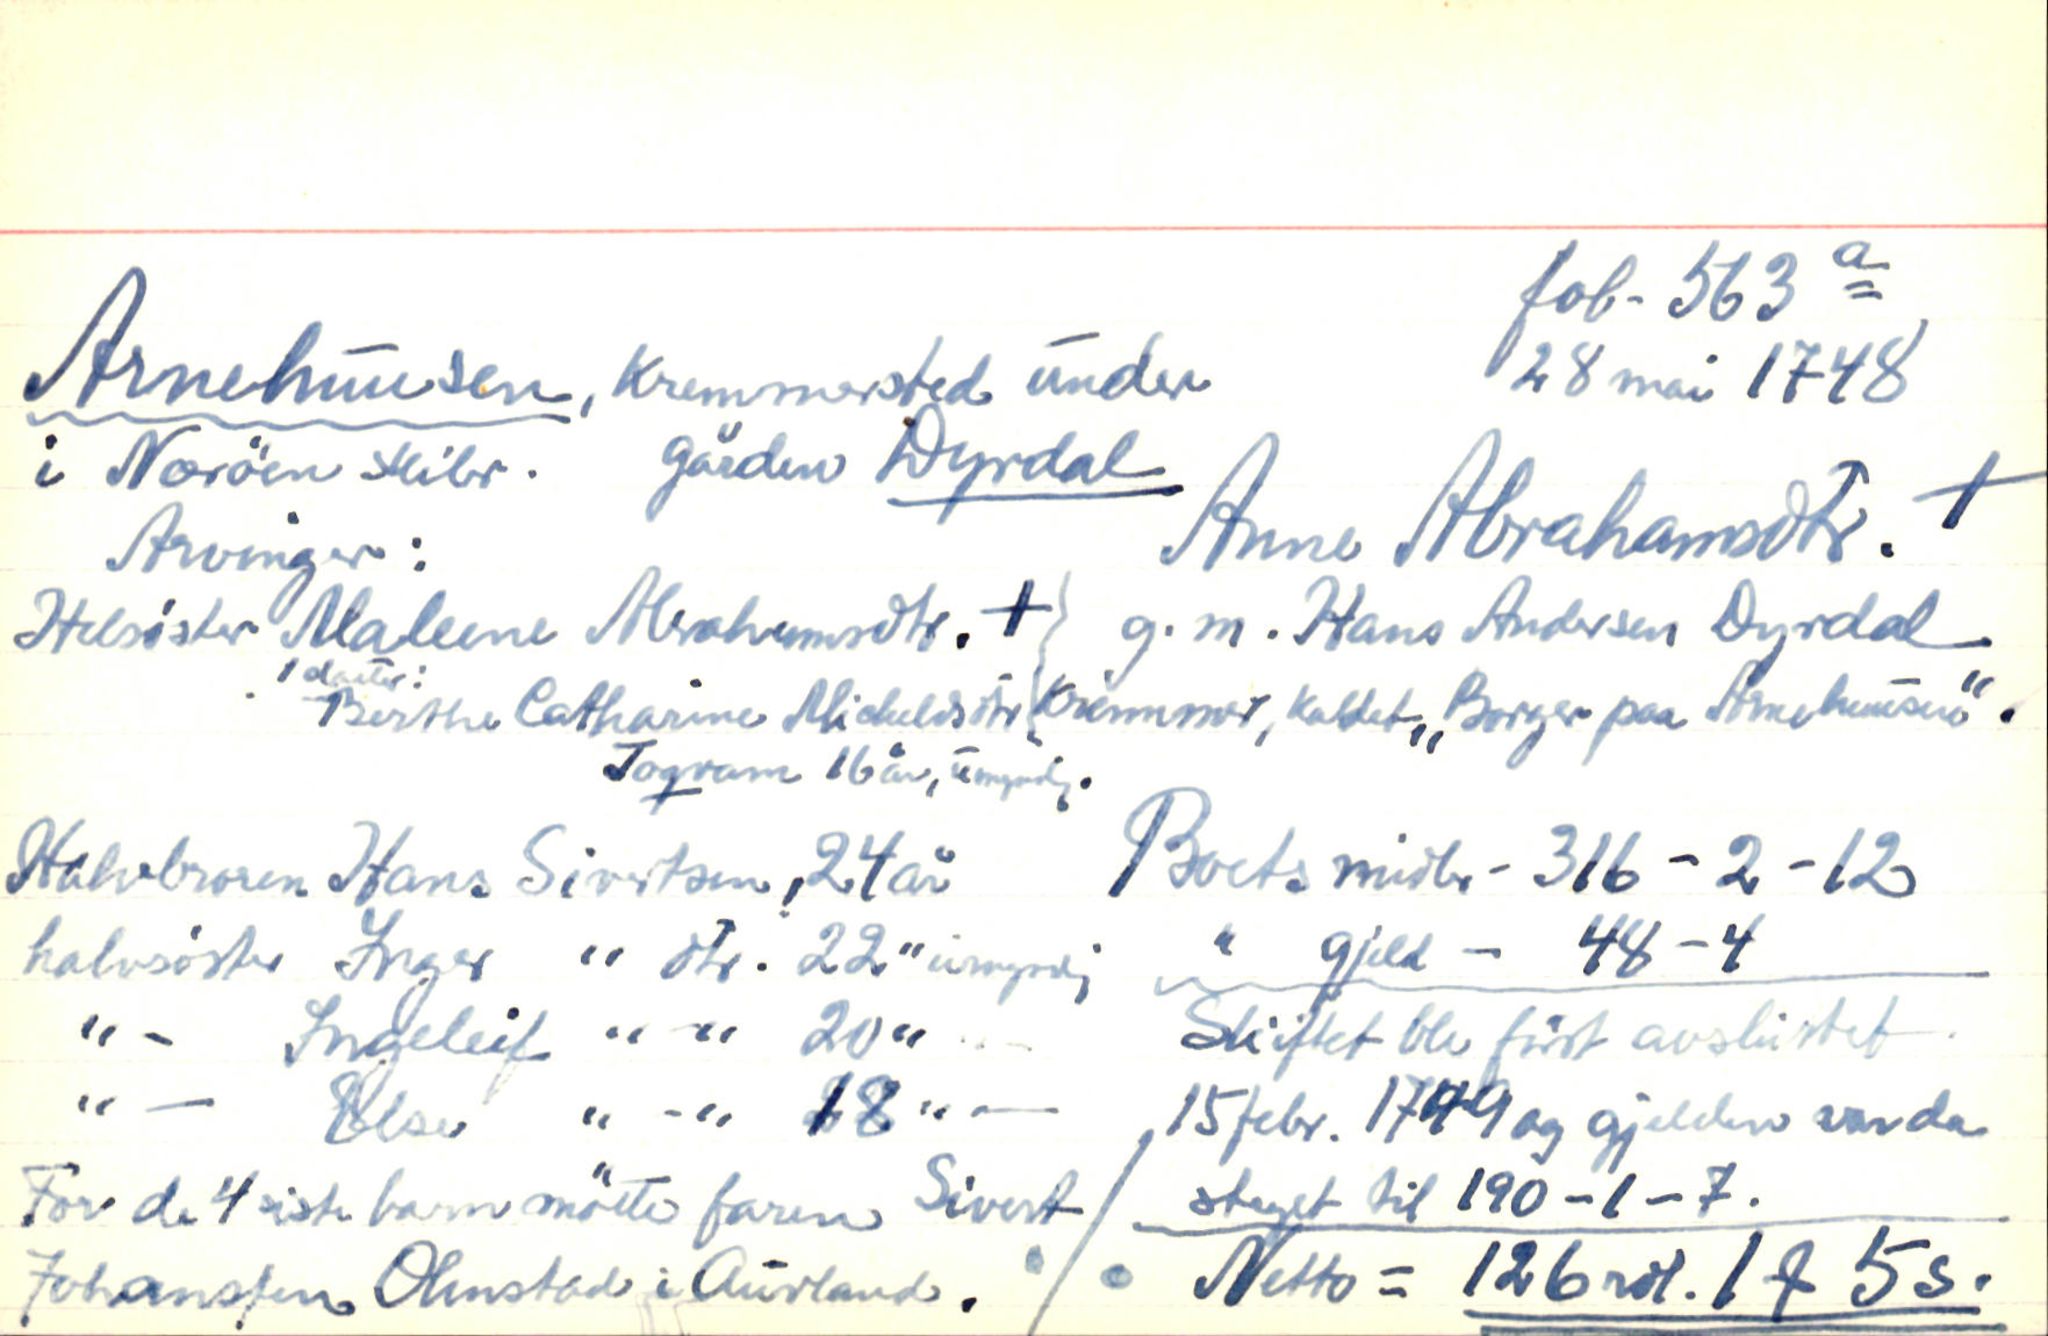 fol- 563 a
28 mai 1748
Arnehuusen, Kremmersted under
i Næröen skibr. gården Dyrdal
Anne Abrahamsdtr. +
Arvinger:
Helsöster Maleene Abrahamsdtr. +
g. m. Hans Andersen Dyrdal
1 datter:
Berthe Catharine Michelsdtr
Kremmer, kaldet „Borger paa Arnehuusen".
16 år, umyndig.
Halvbroren Hans Sivertsen, 24 år
halvsöster Inger " dtr. 22 " umyndig
" - Ingeleif " - " 20 "
" - Else " - " 18 " -
For de 4 siste barn mötte faren Sivert
Johansen Olmstad i Aurland.
Boets midler - 316 - 2 - 12
" gjeld - 48 - 4
Skiftet ble först avsluttet
15 febr. 1749 og gjelden var da
steget til 190 - 1 - 7.
Netto = 126 rdl. 1 # 5 s.